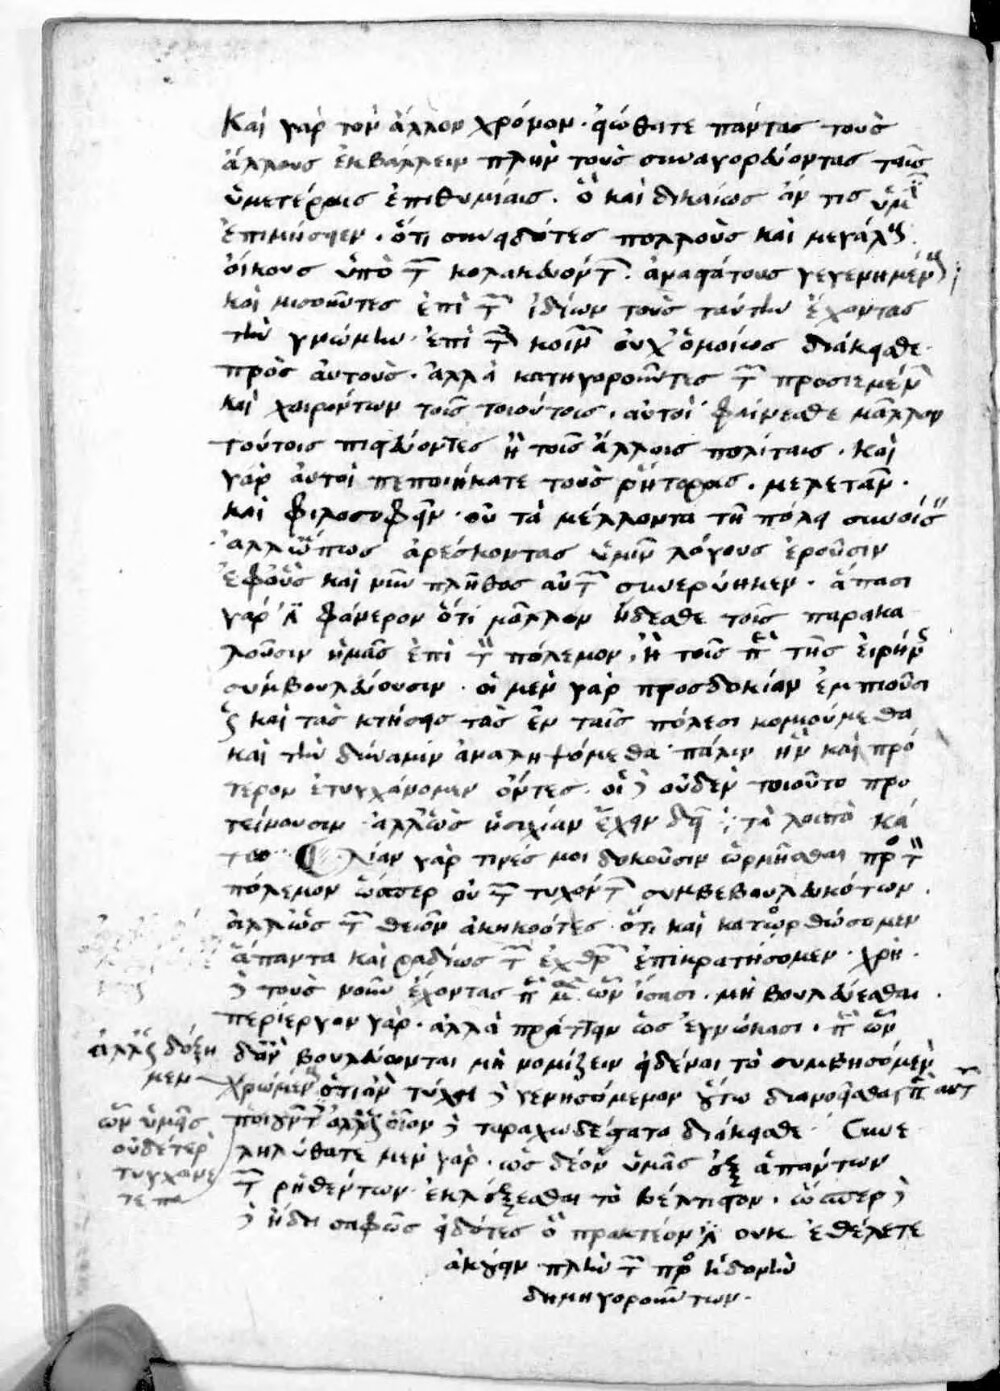 Καὶ γὰρ τὸν ἄλλον χρόνον· εἰώθατε πάντας τοὺς
ἄλλους ἐκβάλλειν πλὴν τοὺς συναγορεύοντας ταῖς
ὑμετέραις ἐπιθυμίαις. ὃ καὶ δικαίως ἄν τις ὑμῖν
ἐπιμήσειεν. ὅτι συνειδότες πολλοὺς καὶ μεγάλους
οἴκους ὑπὸ τῶν κολακευόντων ἀναστάτους γεγενημένους
καὶ μισοῦντες ἐπὶ τῶν ἰδίων τοὺς ταύτην ἔχοντας
τὴν γνώμην· ἐπὶ τῶν κοινῶν οὐχ ὁμοίως διάκεισθε
πρὸς αὐτούς. ἀλλὰ κατηγοροῦντες τῶν προσιεμένων
καὶ χαιρόντων τοῖς τοιούτοις. αὐτοὶ φαίνεσθε μᾶλλον
τούτοις πιστεύοντες ἢ τοῖς ἄλλοις πολίταις. Καὶ
γὰρ αὐτοὶ πεποιήκατε τοὺς ῥήτορας. μελετᾶν.
καὶ φιλοσοφεῖν· οὐ τὰ μέλλοντα τῇ πόλει συνοίσειν
ἀλλ' ὅπως ἀρέσκοντας ὑμῖν λόγους ἐροῦσιν
ἐφ' οὓς καὶ νῦν πλῆθος αὐτῶν συνερύηκεν. ἅπασι
γὰρ ἦν φανερὸν ὅτι μᾶλλον ἥδεσθε τοῖς παρακα
λοῦσιν ἡμᾶς ἐπὶ τὸν πόλεμον, ἢ τοῖς περὶ τῆς εἰρήνης
συμβουλεύουσιν. οἱ μὲν γὰρ προσδοκίαν ἐμποιοῦσι
ὡς καὶ τὰς κτήσεις τὰς ἐν ταῖς πόλεσι κομιούμεθα
καὶ τὴν δύναμιν ἀναληψόμεθα πάλιν ἣν καὶ πρό
τερον ἐτυγχάνομεν ὄντες. οἱ δὲ οὐδὲν τοιοῦτο προ
τείνουσιν· ἀλλ' ὡς ἡσυχίαν ἔχειν δεῖ : τὰ λοιπὰ κά
τω Λίαν γάρ τινές μοι δοκοῦσιν ὡρμῆσθαι πρὸς τὸν
πόλεμον ὥσπερ οὐ τῶν τυχόντων συμβεβουλευκότων.
ἀλλ' ὡς τῶν θεῶν ἀκηκοότες· ὅτι καὶ κατωρθώσομεν
ἅπαντα καὶ ῥαδίως τῶν ἐχθρῶν ἐπικρατήσομεν. χρὴ
δὲ τοὺς νοῦν ἔχοντας περὶ μὲν ὧν ἴσασι. μὴ βουλεύεσθαι.
περίεργον γάρ. ἀλλὰ πράττειν ὡς ἐγνώκασι. περὶ ὧν
δ' ἂν βουλεύωνται μὴ νομίζειν εἰδέναι τὸ συμβησόμενον
χρωμένους ὅτι ἂν τύχη δὲ γενησόμενον οὕτω διανοεῖσθαι περὶ αὐτῶν
ταραχωδέστατα διάκεισθε· Συνε
ληλύθατε μὲν γὰρ. ὡς δέον ὑμᾶς ἐξ ἁπάντων
τῶν ῥηθέντων ἐκλέξεσθαι τὸ βέλτιστον. ὥσπερ δὲ
δὲ ἤδη σαφῶς εἰδότες ὃ πρακτέον ἐστὶν οὐκ ἐθέλετε
ἀκούειν πλὴν τῶν πρὸς ἡδονὴν
δημηγορούντων.
ἀλλὰ δόξῃ
μὲν
ὧν ὑμεῖς
οὐδέτερον
τυγχάνε
τε πο